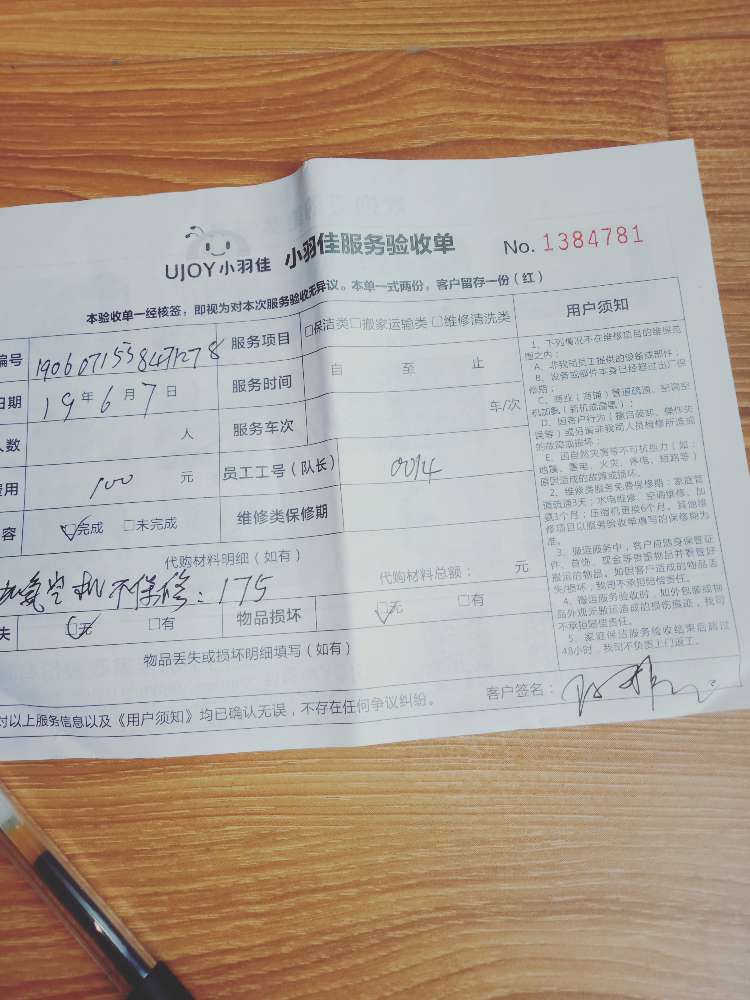 UJOY小羽佳 小羽佳服务验收单 No. 1384781
本验收单一经核签，即视为对本次服务验收无异议。本单一式两份，客户留存一份（红）
编号 服务项目 □保洁类□搬家运输类 □维修清洗类
日期 19年6月7日 服务时间 自 至 止
人数 人 服务车次 车/次
费用 100 元 员工工号（队长） 0014
容 ☑完成 □未完成 维修类保修期
代购材料明细（如有） 代购材料总额： 元
机不保修：175
失 ☑无 □有 物品损坏 ☑无 □有
物品丢失或损坏明细填写（如有）
对以上服务信息以及《用户须知》均已确认无误，不存在任何争议纠纷。 客户签名：
用户须知
1、下列情况不在维修项目的维保范
围之内：
A、非我司员工提供的设备或部件；
B、设备或部件本身已经超过出厂保
修期；
C、商业（商铺）管道疏通、空调空
机加氨（新机或漏氨）；
D、因客户行为（擅自装卸、操作失
误等）或另雇非我司人员检修所造成
的故障或损坏；
E、因自然灾害等不可抗原力（如：
地震、雷电、火灾、停电、短路等）
原因造成的故障或损坏。
2、维修类服务免费保修期：家庭管
道疏通3天；水电维修、空调维修、加
氨3个月；压缩机更换6个月。其他维
修项目以服务验收单填写的保修期为
准。
3、搬运服务中，客户应随身保管证
件、首饰、现金等贵重物品并看管好
搬运的物品。如因客户造成的物品丢
失/损坏，我司不承担赔偿责任。
4、搬运服务验收时，如外包装或物
品外观无搬运造成的损伤痕迹，我司
不承担赔偿责任。
5、家庭保洁服务验收结束后超过
48小时，我司不负责上门返工。